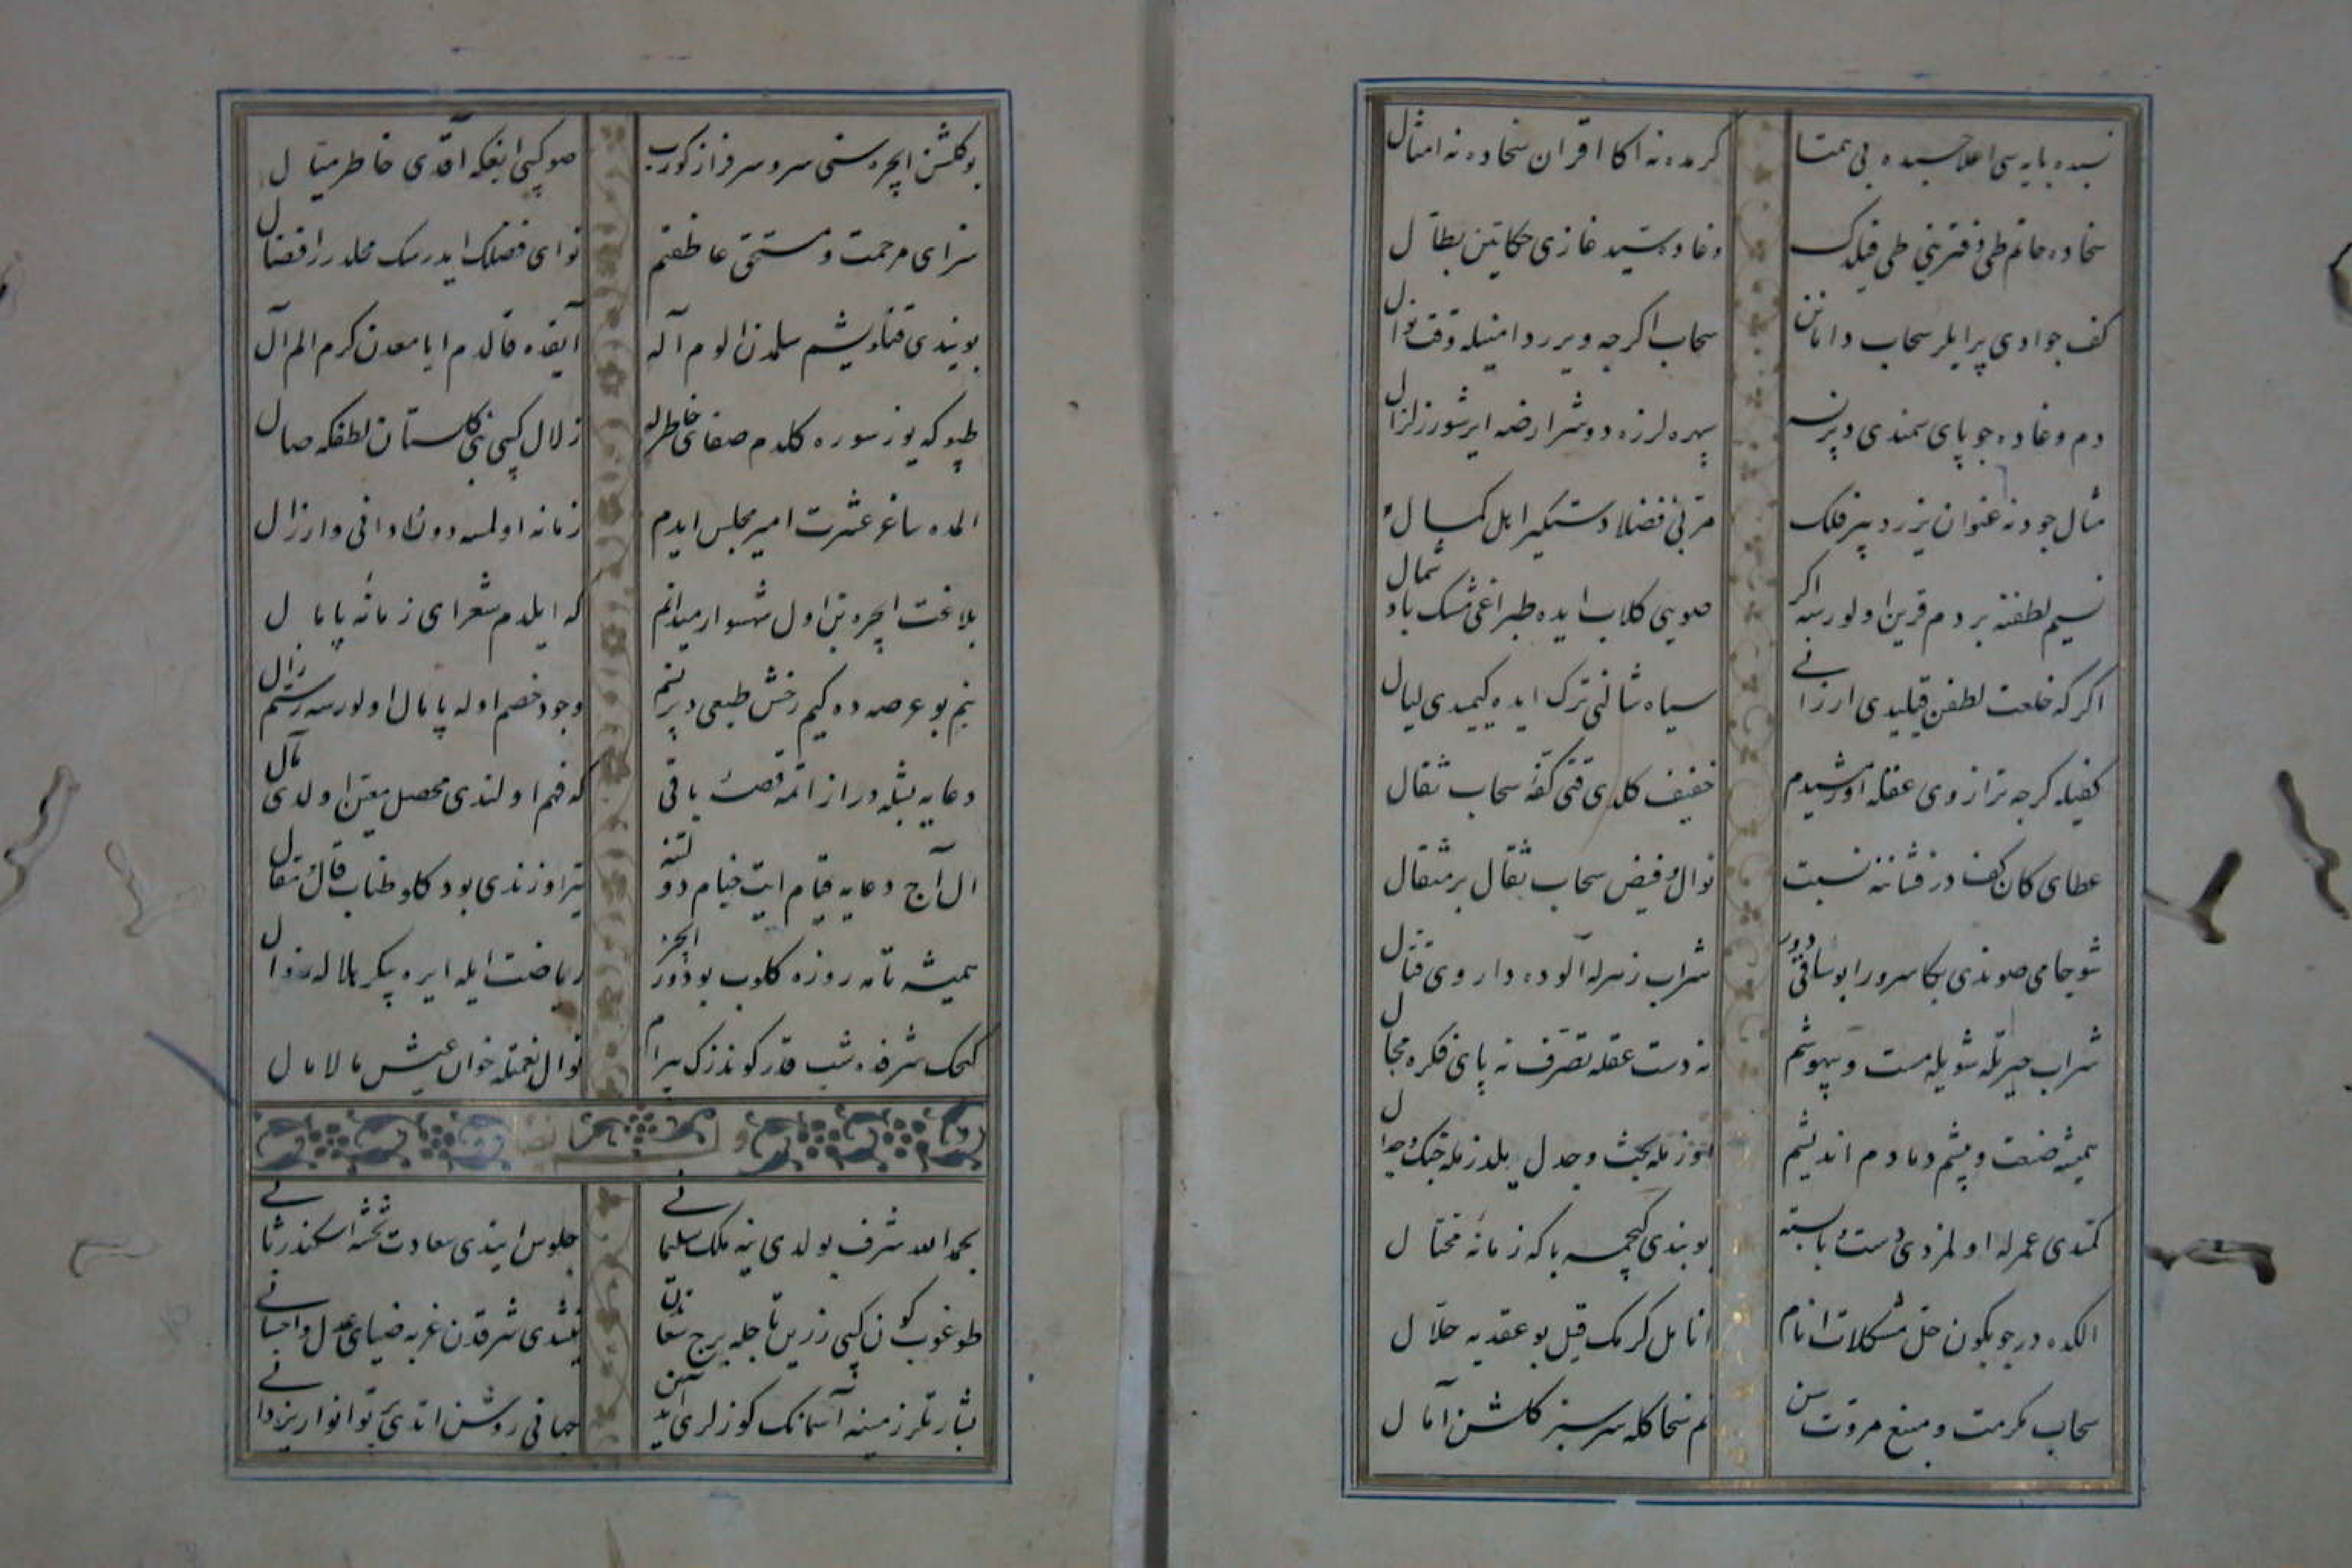 نسبده پایه سی اعلا حسبده بی همتا
کرمده نه اکا اقران سخاده نه امثال
سخاده حاتم طی دفترینی طی قیلدک
وغاده سید غازی حکایتین بطال
کف جوادی پر ایلر سحاب دامانن
سحاب اکرچه ویرر دامنیله وقت نوال
دم وغاده چو پای سمندی دپرنسه
سپهره لرزه دوشر ارضه ایرشور زلزال
مثال جودنه عنوان یزرد پیر فلک
مربی فضلا دستکیر اهل کمال
نسیم لطفنه بر دم قرین اولورسه اکر
صویی کلاب ایده طپراغی مشک باد شمال
اکر که خلعت لطفن قیلیدی ارزانی
سیاه شالنی ترک ایده کیمیدی لیال
کفیله کرچه ترازوی عقله اورشیدم
خفیف کلدی قتی کفهٔ سحاب ثقال
عطای کان کف درفشاننه نسبت
نوال و فیض سحاب ثقال بر مثقال
شو جامی صوندی بکا سرورا بو ساقی دور
شراب زهرله آلوده داروی قتال
شراب حیرتله شویله مست و بیهوشم
نه دست عقله تصرف نه پای فکره مجال
همیشه ضعف و پشم دمادم اندیشم
بحث و جدل یلدزمله جنک و جدال
کمندی عمرله اولمزدی دست و پا بسته
بو بندی کچمسه باکه زمانهٔ محتال
الکده در چو بکون حل مشکلات انام
انامل کرمک قیل بو عقدیه حلال
سحاب مکرمت و منبع مروت سن
نم سخاکله سرسبز کلشن آمال
بو کلشن ایچره سنی سرو سرفراز کورب
صو کبی ایغکه آقدی خاطر میال
سزای مرحمت و مستحق عاطفتم
نوای فضلک ایدرسک محلدر افضال
بو بندی قنده ویشم سلمدن الوم آله
آیقده قالدم ایا معدن کرم الم آل
طپوکه یوز سوره کلدم صفای خاطرله
زلال کبی بنی کلستان لطفکه صال
المده ساغر عشرت امیر مجلس ایدم
زمانه اولمسه دونان دانی و ارزال
بلاغت ایچره بن اول شهسوار میدانم
که ایلدم شعرای زمانه پامال
بنم بو عرصه ده کیم رخش طبعی دپرنم
وجود خصم اوله پامال اولورسه رستم زال
دعایه بشله دراز اتمه قصه باقی
که فهم اولندی محصل معین اولدی مآل
ال آچ دعایه قیام ایت خیام دولتنه
یتر اوزندی بو دکلو طناب قال و مقال
همیشه تا مه روزه کلوب بو دور ایچره
ریاضت ایله ایره پیکر هلاله زوال
کجک شرفده شب قدر کوندزک بیرام
نوال نعمتله خوان عیش مالامال
بحمد الله شرف بولدی ینه ملک سلیمانی
جلوس ایتدی سعادت تختنه اسکندر ثانی
طوغوب کون کبی زرین تاجله برج سعادتدن
یتشدی شرقدن غربه ضیای عدل و احسانی
بشارتلر زمینه آسمانک کوزلری آیدین
جهانی روشن اتدی پرتو انوار یزدانی